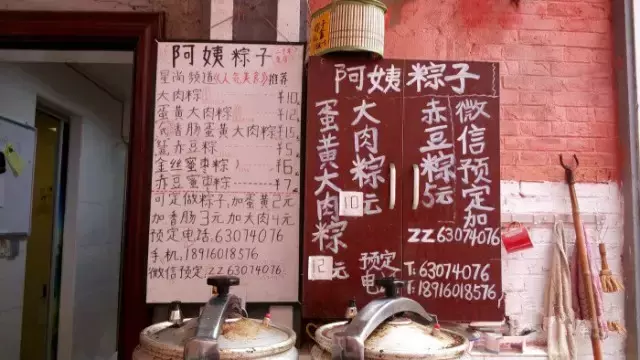 阿姨粽子
星尚频道《人气美食》推荐
大肉粽 ¥10
蛋黄大肉粽 ¥12
香肠蛋黄大肉粽 ¥15
赤豆粽 ¥5
金丝蜜枣粽 ¥6
赤豆蜜枣粽 ¥7
可定做粽子,加蛋黄2元
加香肠3元加大肉4元
预定电话,63074076
手机,18916018576
微信预定,ZZ63074076
阿姨粽子
微信预定加
ZZ63074076
赤豆粽5元
大肉粽10元
蛋黄大肉粽12元
预定电话
T:63074076
T:18916018576